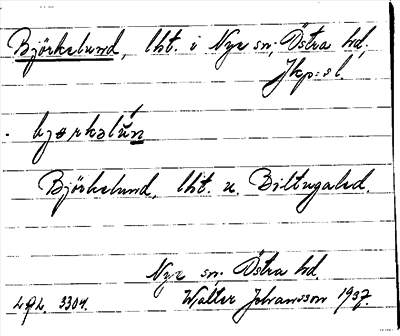 Björkelund, lht. i Nye sn; Östra hd,
Jkp:s l.
bjørkəlún
Björkelund, lht. u.
Nye sn. Östra hd.
Walter Johansson 1937.